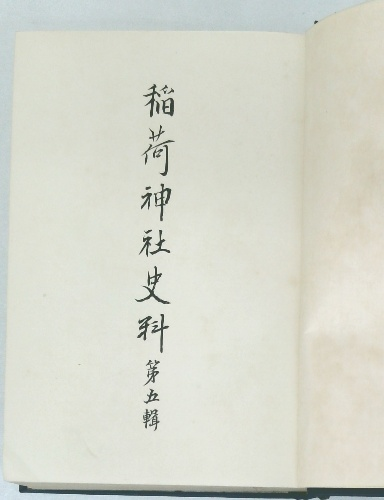 稲荷神社史料第五輯